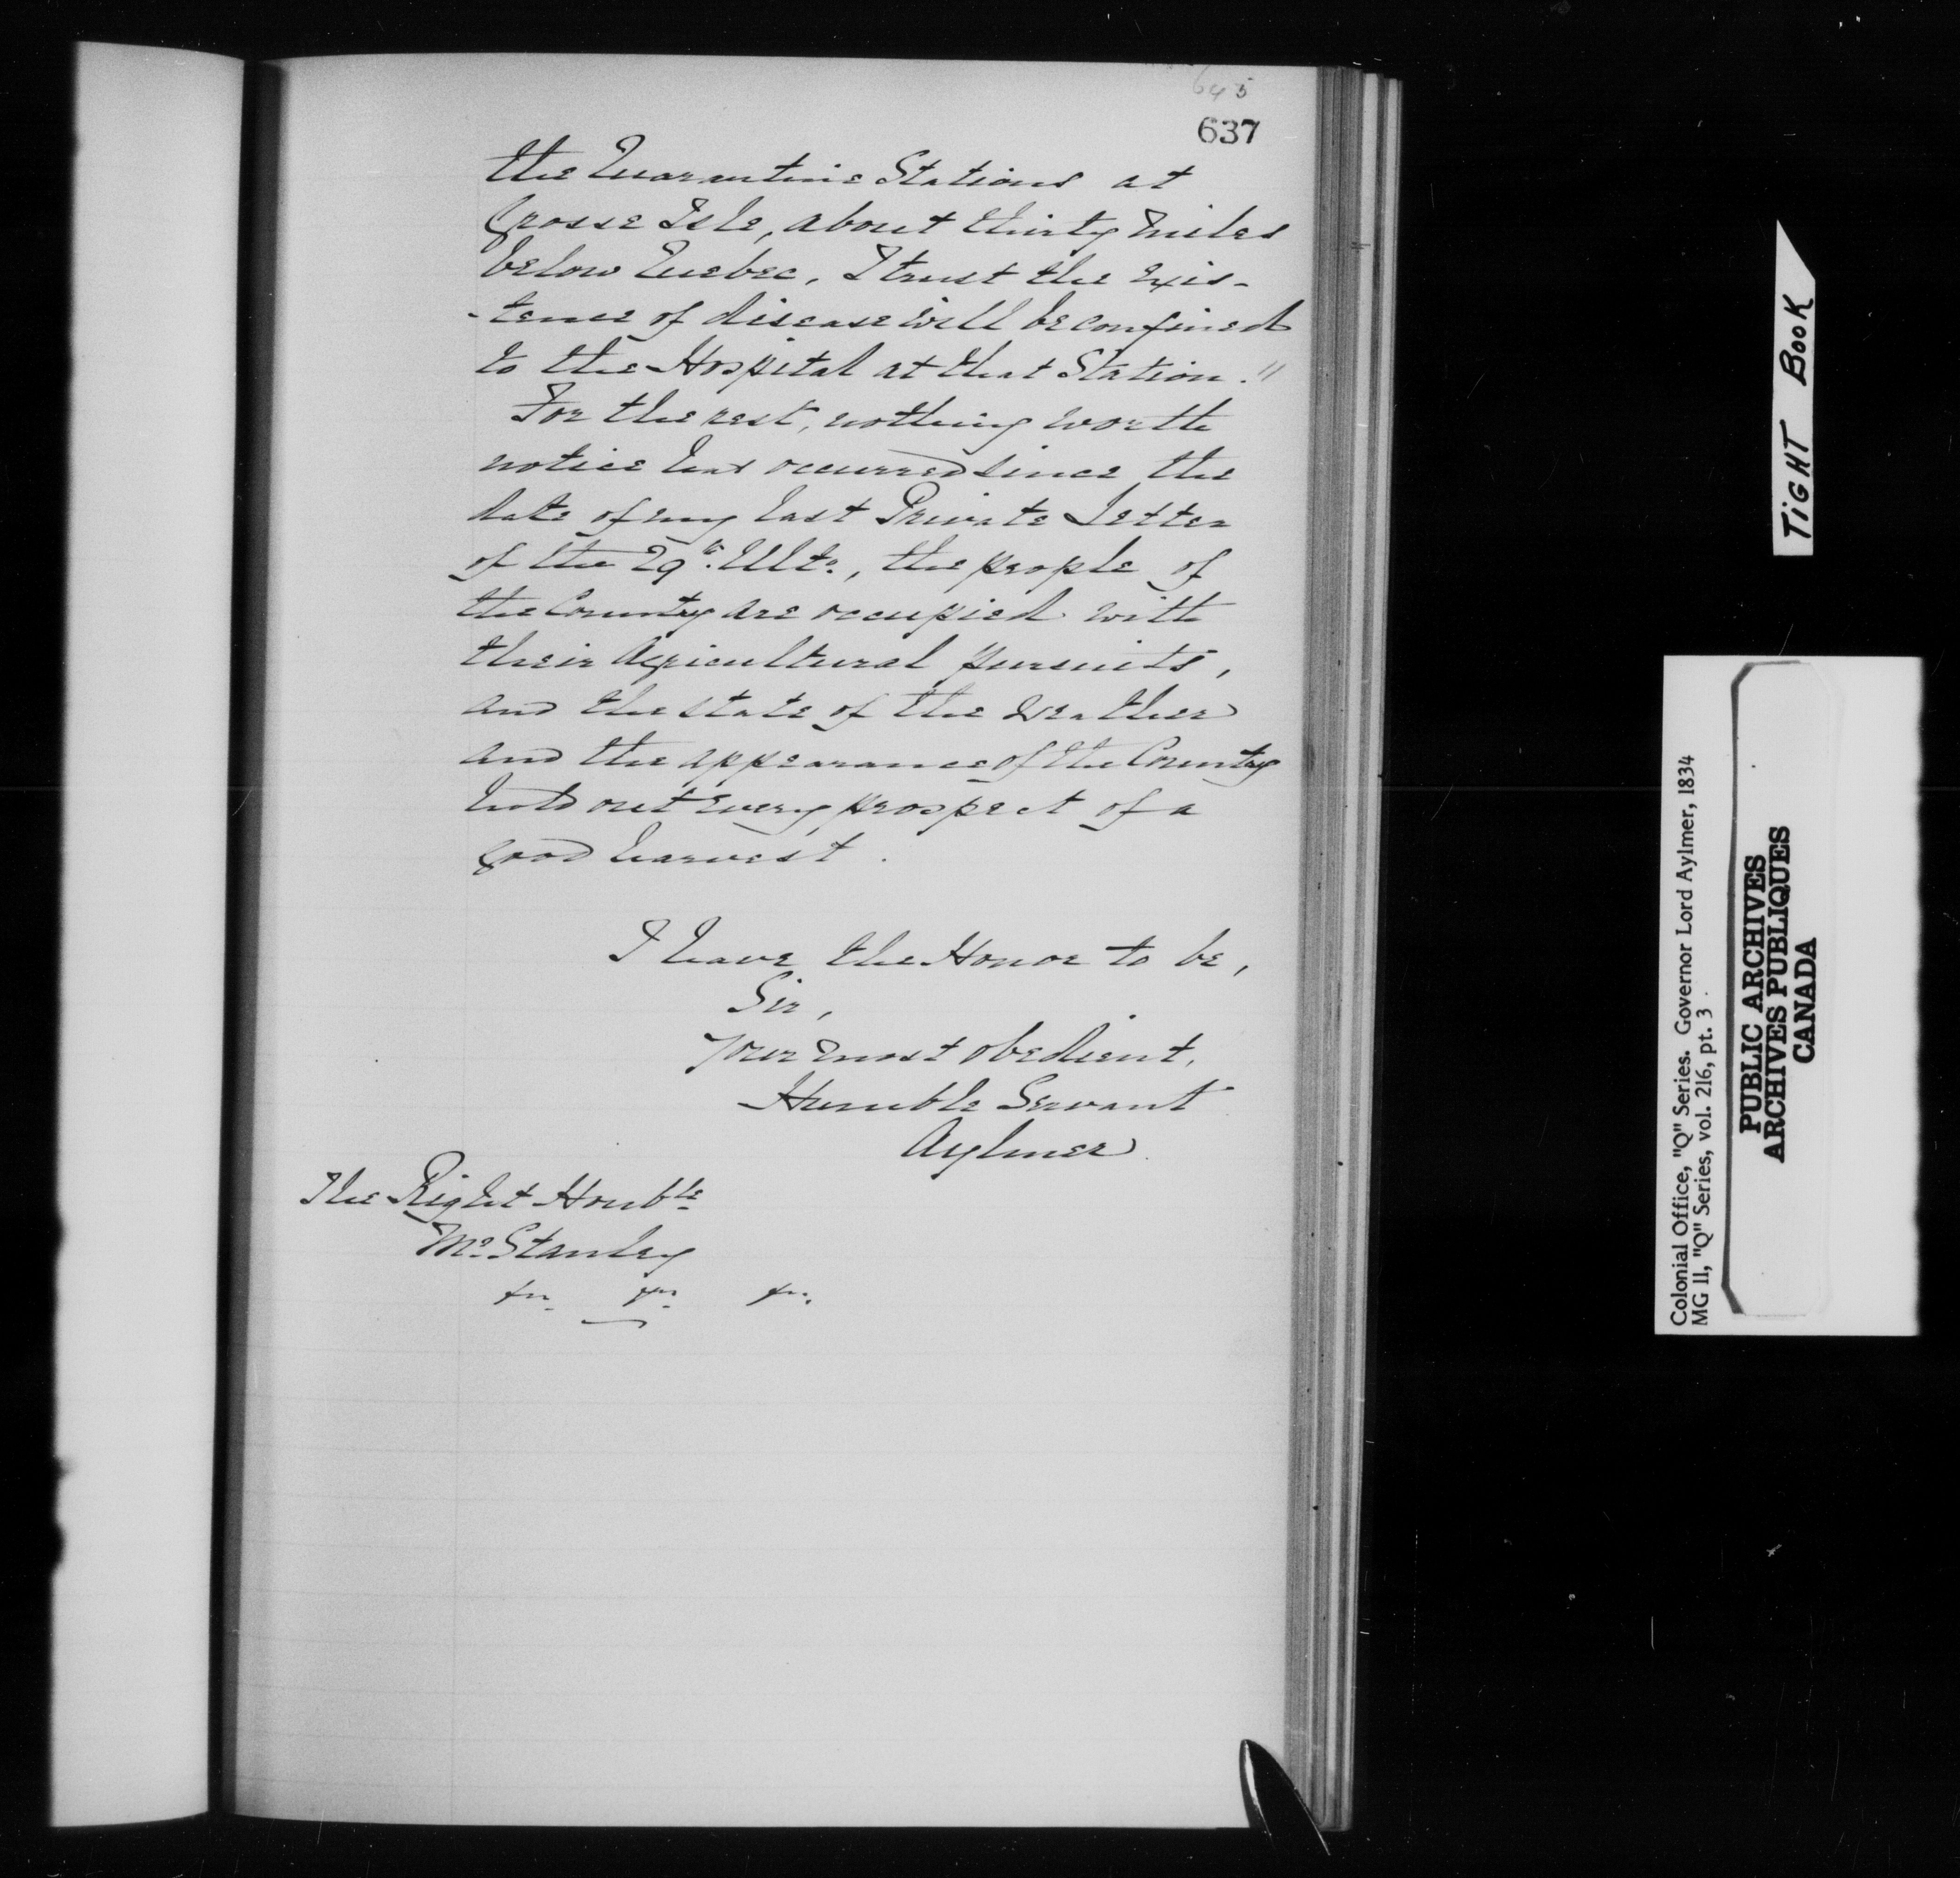 645
637
the Quarantine Stations at
Grosse Isle, about thirty miles
below Quebec, I trust the exis-
-tence of disease will be confined
to the Hospital at that Station."
For the rest, nothing worth
notice has occurred since the
date of my last Private Letter
of the 29th. Ulto., the people of
the Country are occupied with
their Agricultural pursuits,
and the state of the weather
and the appearance of the Country
hold out every prospect of a
good harvest.
I have the Honor to be,
Sir,
Your most obedient,
Humble Servant
Aylmer
The Right Honble
Mr Stanley
&c. &c. &c.
TIGHT BOOK
Colonial Office, "Q" Series. Governor Lord Aylmer, 1834
MG 11, "Q" Series, vol. 216, pt. 3
PUBLIC ARCHIVES
ARCHIVES PUBLIQUES
CANADA